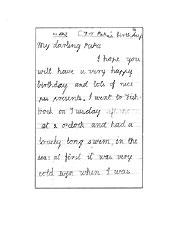 Papa's birthday
My darling Papa
I hope you
will have a very happy
birthday and lots of nice
presents. I went to Fish
rock on Tuesday afternoon
at 2 o'clock and had a
lovely long swim in the
sea. at first it was very
cold even when I was